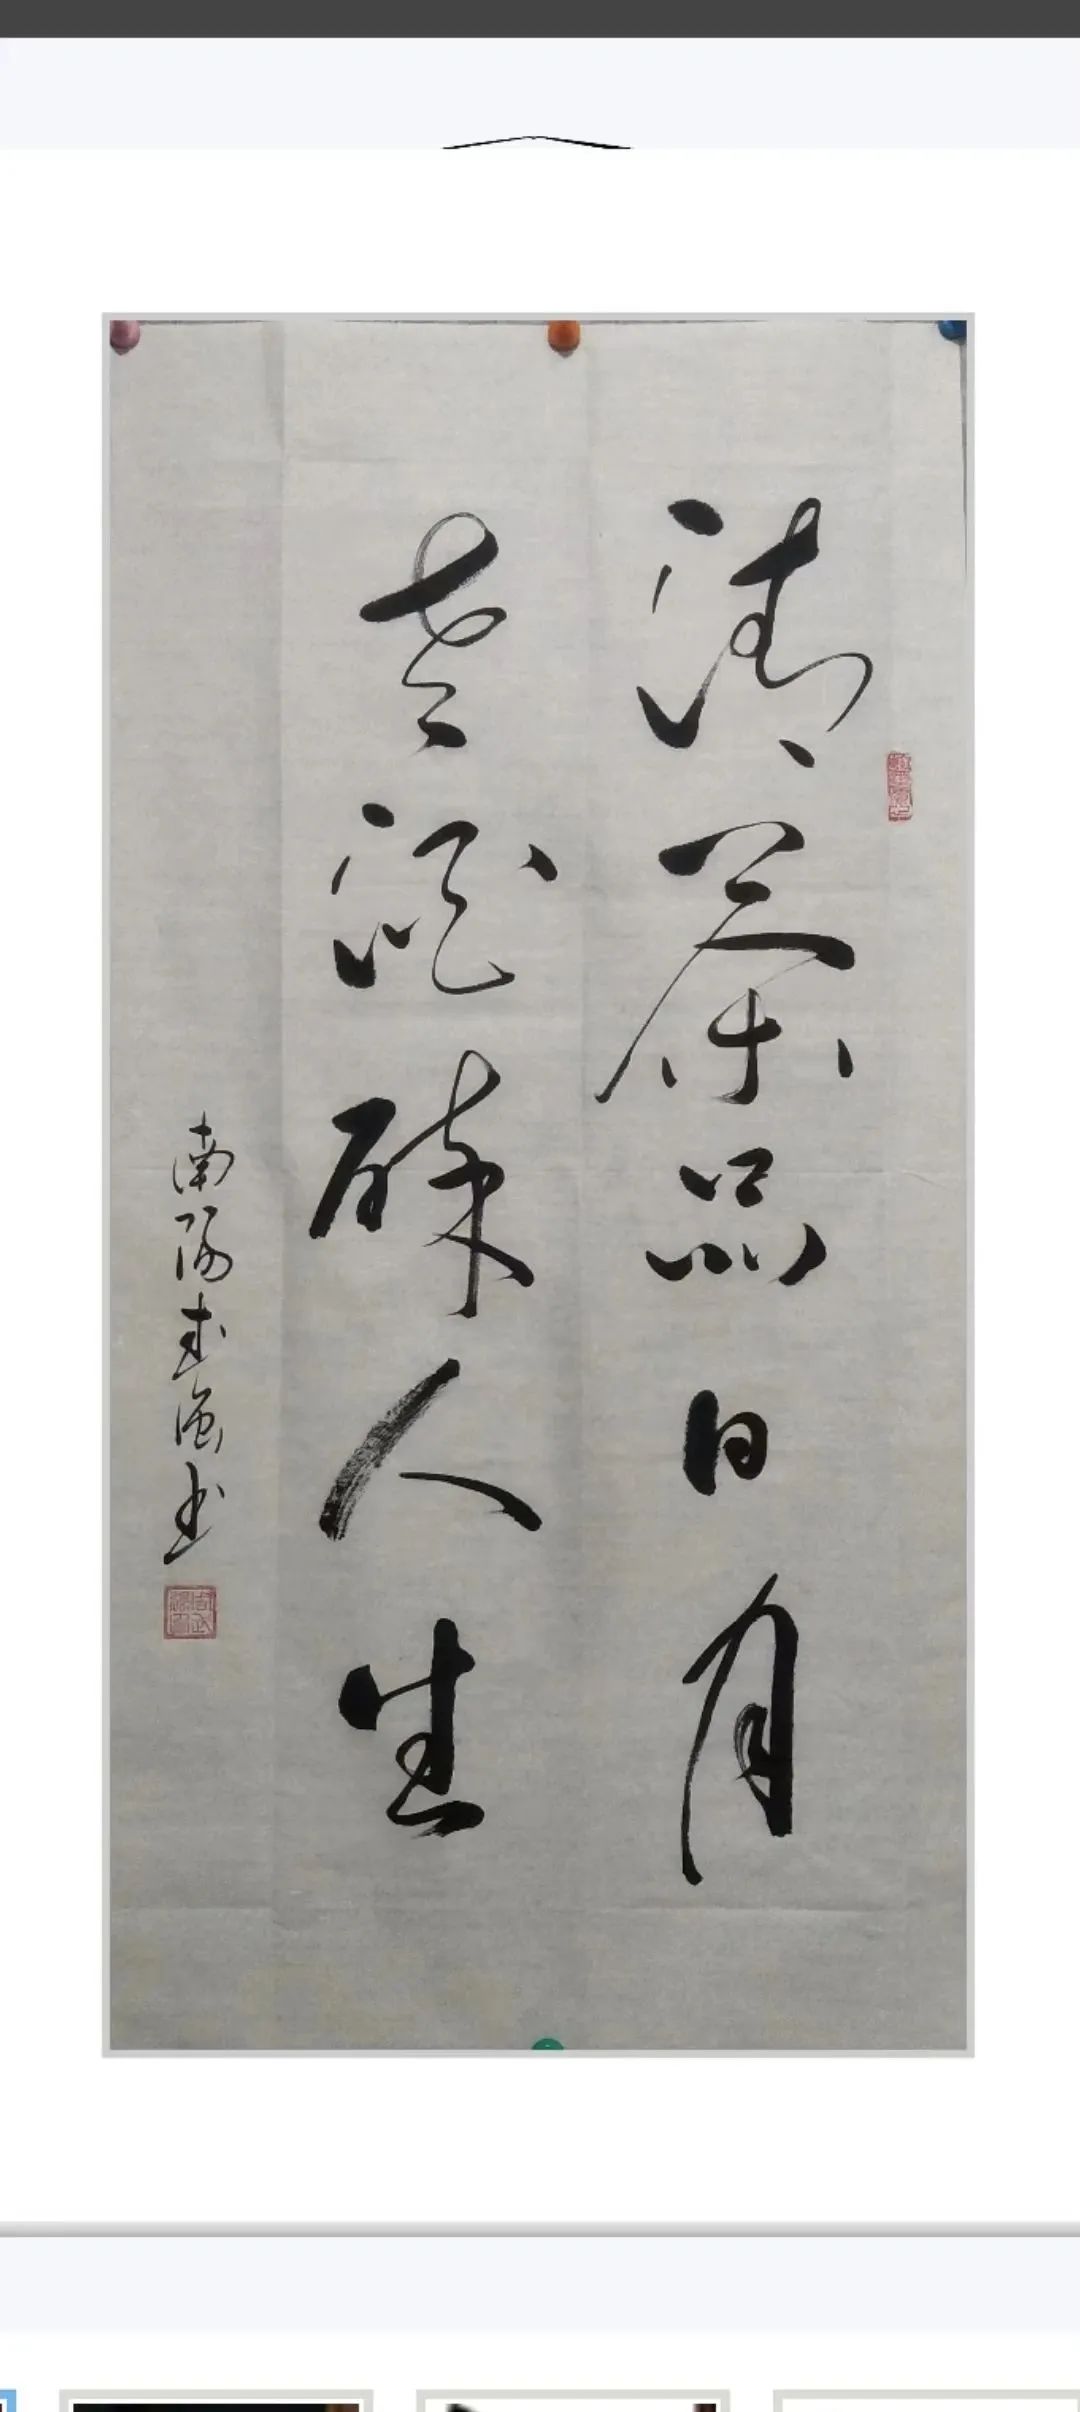 清茶品日月
老酒醉人生
南阳武强书